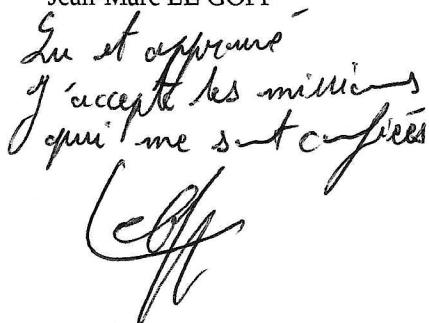 Jean-Marc LE GOFF
Lu et approuvé
J'accepte les missions
qui me sont confiées